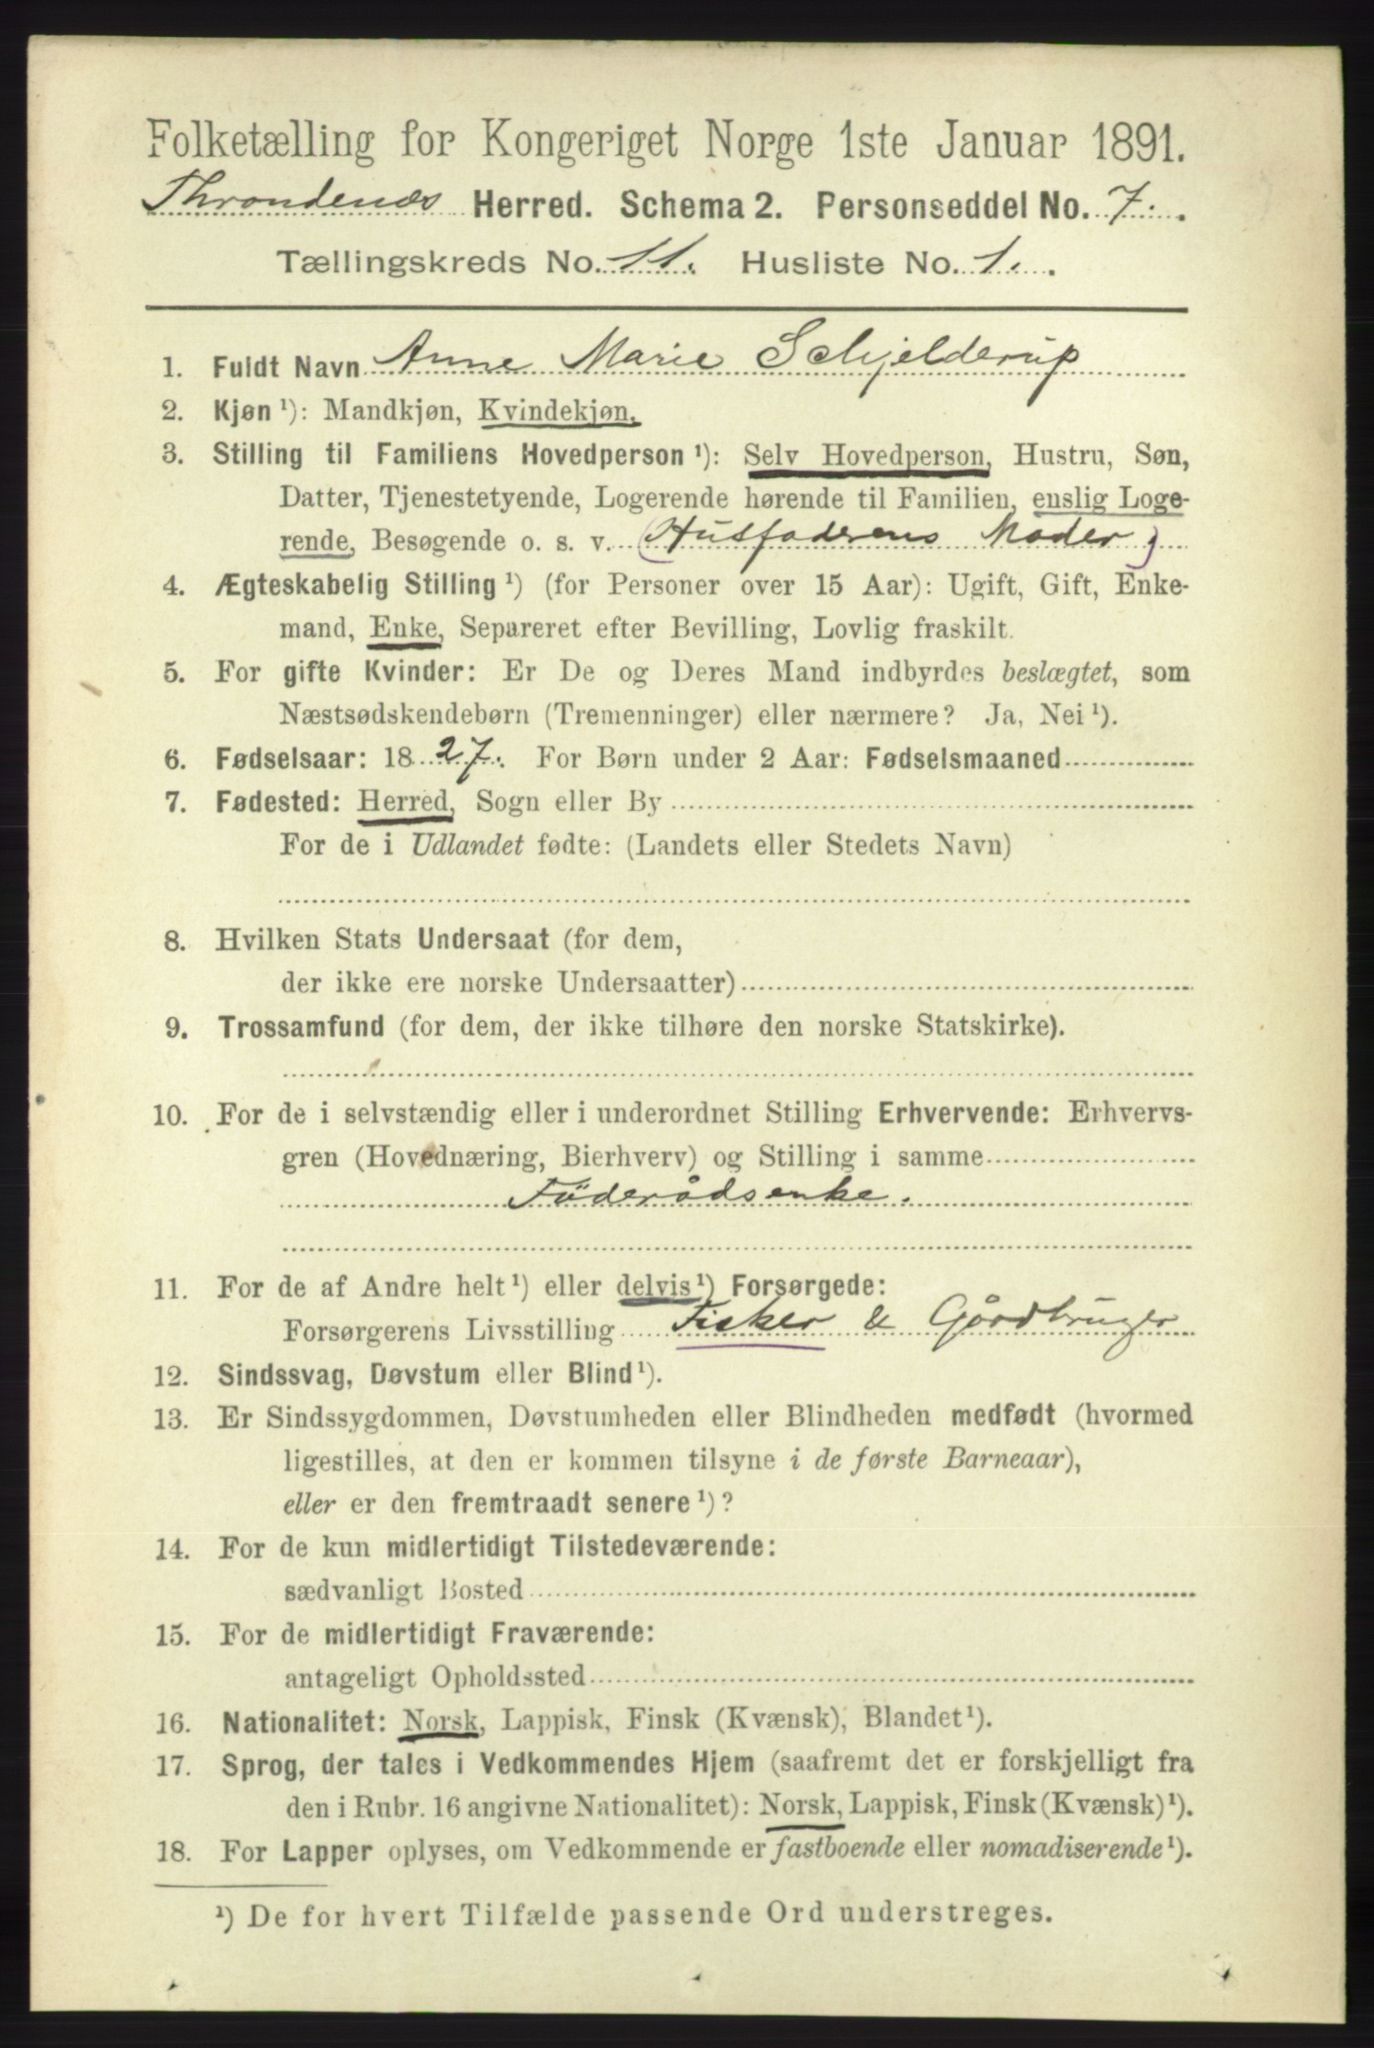 Folketælling for Kongeriget Norge 1ste Januar 1891.
Throndenæs Herred. Schema 2. Personseddel No. 7.
Tællingskreds No. 11. Husliste No. 1.
1. Fuldt Navn Anne Marie Schjelderup
2. Kjøn ¹): Mandkjøn, Kvindekjøn.
3. Stilling til Familiens Hovedperson ¹): Selv Hovedperson, Hustru, Søn,
Datter, Tjenestetyende, Logerende hørende til Familien, enslig Loge-
rende, Besøgende o. s. v. (Husfaderens Moder)
4. Ægteskabelig Stilling ¹) (for Personer over 15 Aar): Ugift, Gift, Enke-
mand, Enke, Separeret efter Bevilling, Lovlig fraskilt.
5. For gifte Kvinder: Er De og Deres Mand indbyrdes beslægtet, som
Næstsødskendebørn (Tremenninger) eller nærmere? Ja, Nei ¹).
6. Fødselsaar: 1827. For Børn under 2 Aar: Fødselsmaaned
7. Fødested: Herred, Sogn eller By
For de i Udlandet fødte: (Landets eller Stedets Navn)
8. Hvilken Stats Undersaat (for dem,
der ikke ere norske Undersaatter)
9. Trossamfund (for dem, der ikke tilhøre den norske Statskirke).
10. For de i selvstændig eller i underordnet Stilling Erhvervende: Erhvervs-
gren (Hovednæring, Bierhverv) og Stilling i samme
Föderådsenke.
11. For de af Andre helt ¹) eller delvis ¹) Forsørgede:
Forsørgerens Livsstilling Fisker & Gårdbruger
12. Sindssvag, Døvstum eller Blind ¹).
13. Er Sindssygdommen, Døvstumheden eller Blindheden medfødt (hvormed
ligestilles, at den er kommen tilsyne i de første Barneaar),
eller er den fremtraadt senere ¹)?
14. For de kun midlertidigt Tilstedeværende:
sædvanligt Bosted
15. For de midlertidigt Fraværende:
antageligt Opholdssted
16. Nationalitet: Norsk, Lappisk, Finsk (Kvænsk), Blandet ¹).
17. Sprog, der tales i Vedkommendes Hjem (saafremt det er forskjelligt fra
den i Rubr. 16 angivne Nationalitet): Norsk, Lappisk, Finsk (Kvænsk) ¹).
18. For Lapper oplyses, om Vedkommende er fastboende eller nomadiserende ¹).
¹) De for hvert Tilfælde passende Ord understreges.